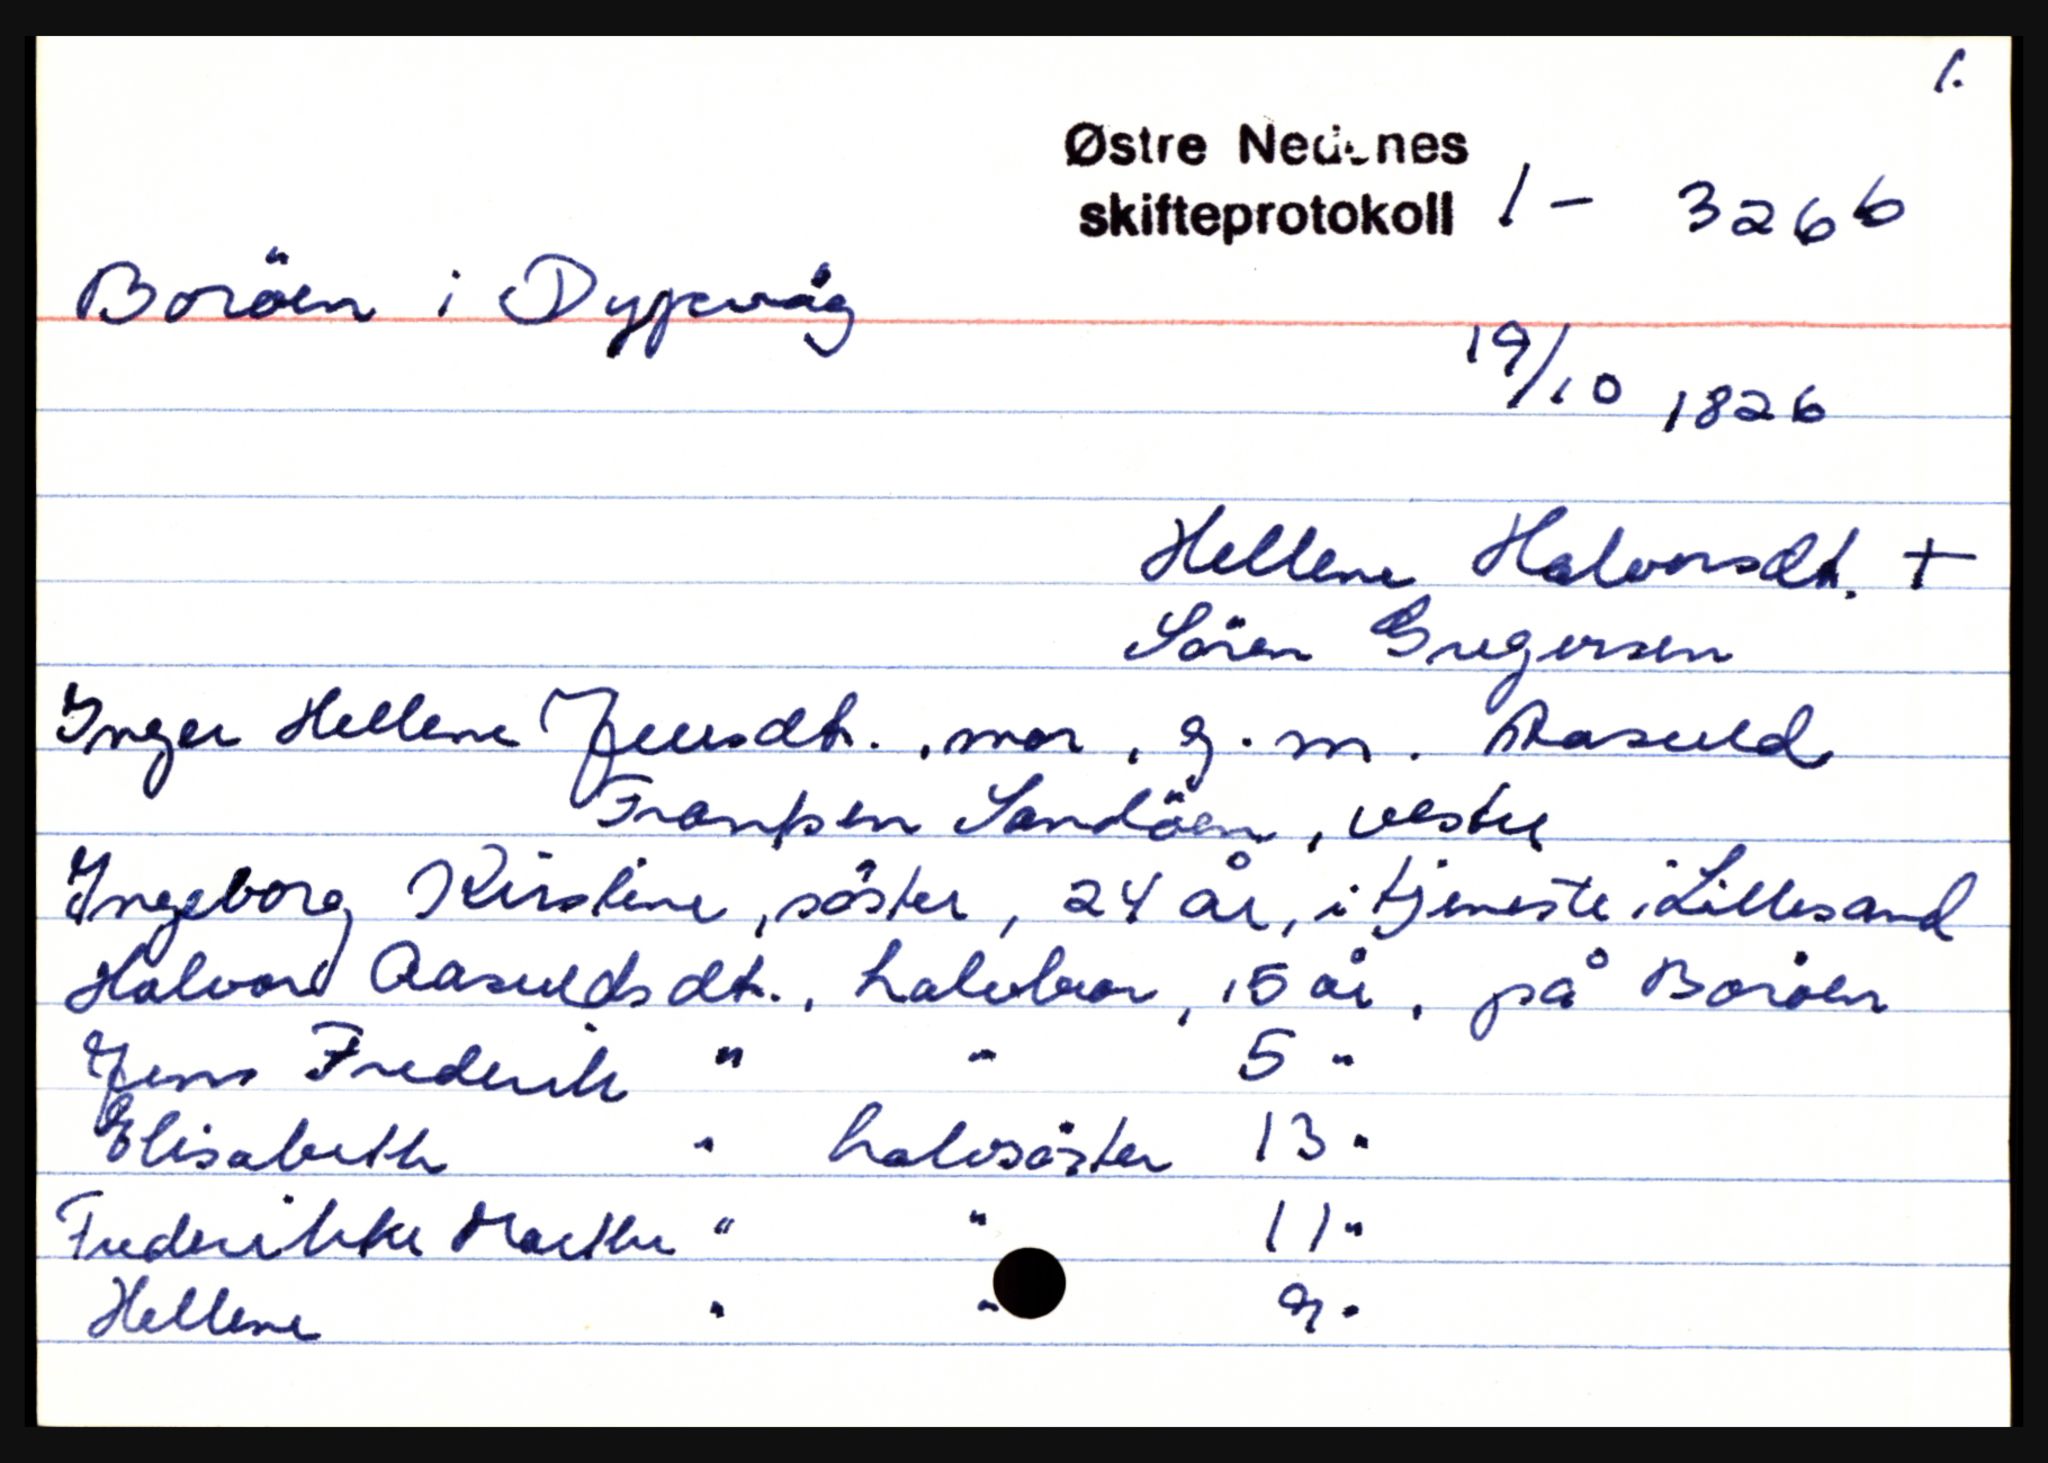 1.
Østre Nedenes
skifteprotokoll 1 - 326 b
Boröen i Dypvåg
19/10 1826
Hellene Halvorsdt. +
Sören Gregersen
Inger Hellene Jensdt., mor, g.m. Aasuld
Franksen Sandöen, vestre
Ingeborg Kirstine, söster, 24 år, i tjeneste i Lillesand
Halvor Aasuldsdt., halvbror, 15 år, på Boröen
Jens Frederik " " 5 "
Elisabeth " halvsöster 13 "
Frederikke Marthe " " 11 "
Hellene " " 9 "